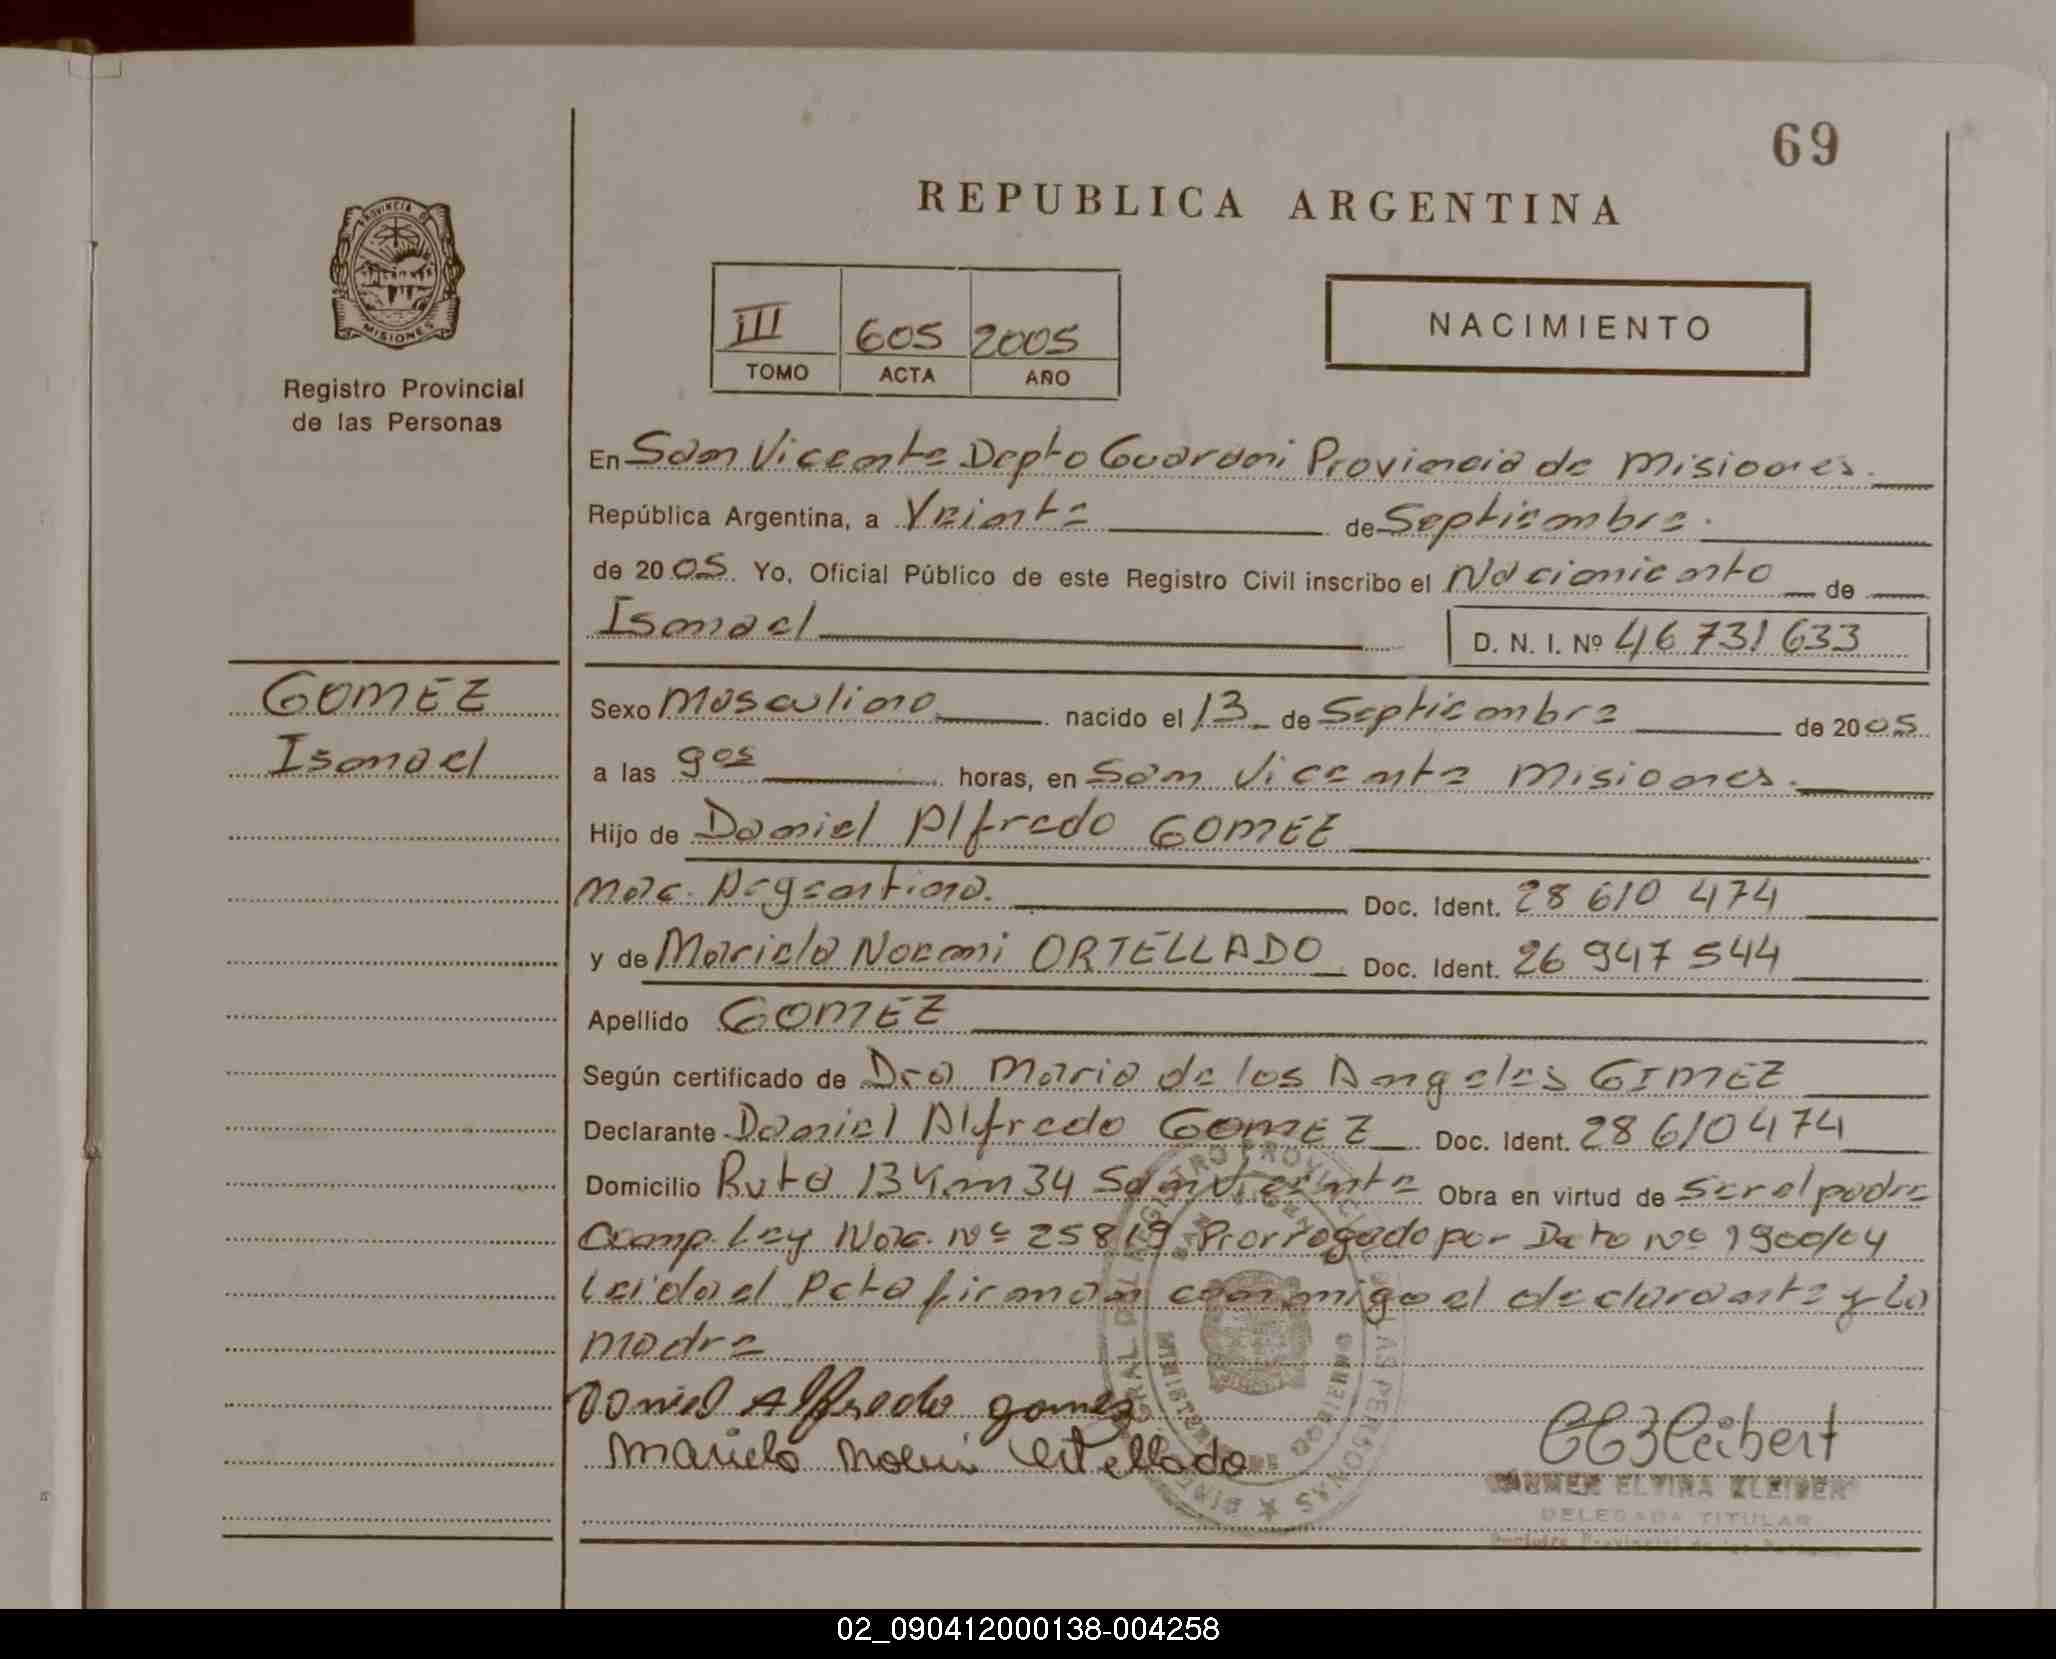 69
REPUBLICA ARGENTINA
PROVINCIA DE
MISIONES
Registro Provincial
de las Personas
III 605 2005
TOMO ACTA AÑO
NACIMIENTO
En San Vicente Depto Guarani Provincia de Misiones.
República Argentina, a Veinte de Septiembre.
de 2005. Yo, Oficial Público de este Registro Civil inscribo el Nacimiento de
Ismael D. N. I. Nº 46 731 633
GOMEZ
Ismael
Sexo Masculino nacido el 13 de Septiembre de 2005
a las 9 05 horas, en San Vicente Misiones.
Hijo de Daniel Alfredo GOMEZ
Nac. Argentina. Doc. Ident. 28 610 474
y de Mariela Noemi ORTELLADO Doc. Ident. 26 947 544
Apellido GOMEZ
Según certificado de Dra Maria de los Angeles GIMEZ
Declarante Daniel Alfredo GOMEZ Doc. Ident. 28 610 474
Domicilio Ruta 13 Km 34 San Vicente Obra en virtud de Ser el padre
Comp. Ley Nac. Nº 25819 Prorrogado por Dcto Nº 1900/04
Leida el Acta firman conmigo el declarante y la
madre
Daniel Alfredo gomez
Mariela Noemi Ortellado
CARMEN ELVIRA KLEIBER
DELEGADA TITULAR
Registro Provincial de las Personas
02_090412000138-004258